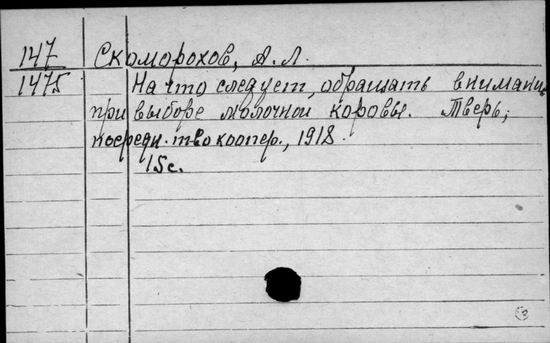 147 Скоморохов, А. Л.
1475 На что следует обращать внимание
при выборе молочной коровы. Тверь,
посредн. т-во коопер., 1918.
15с.